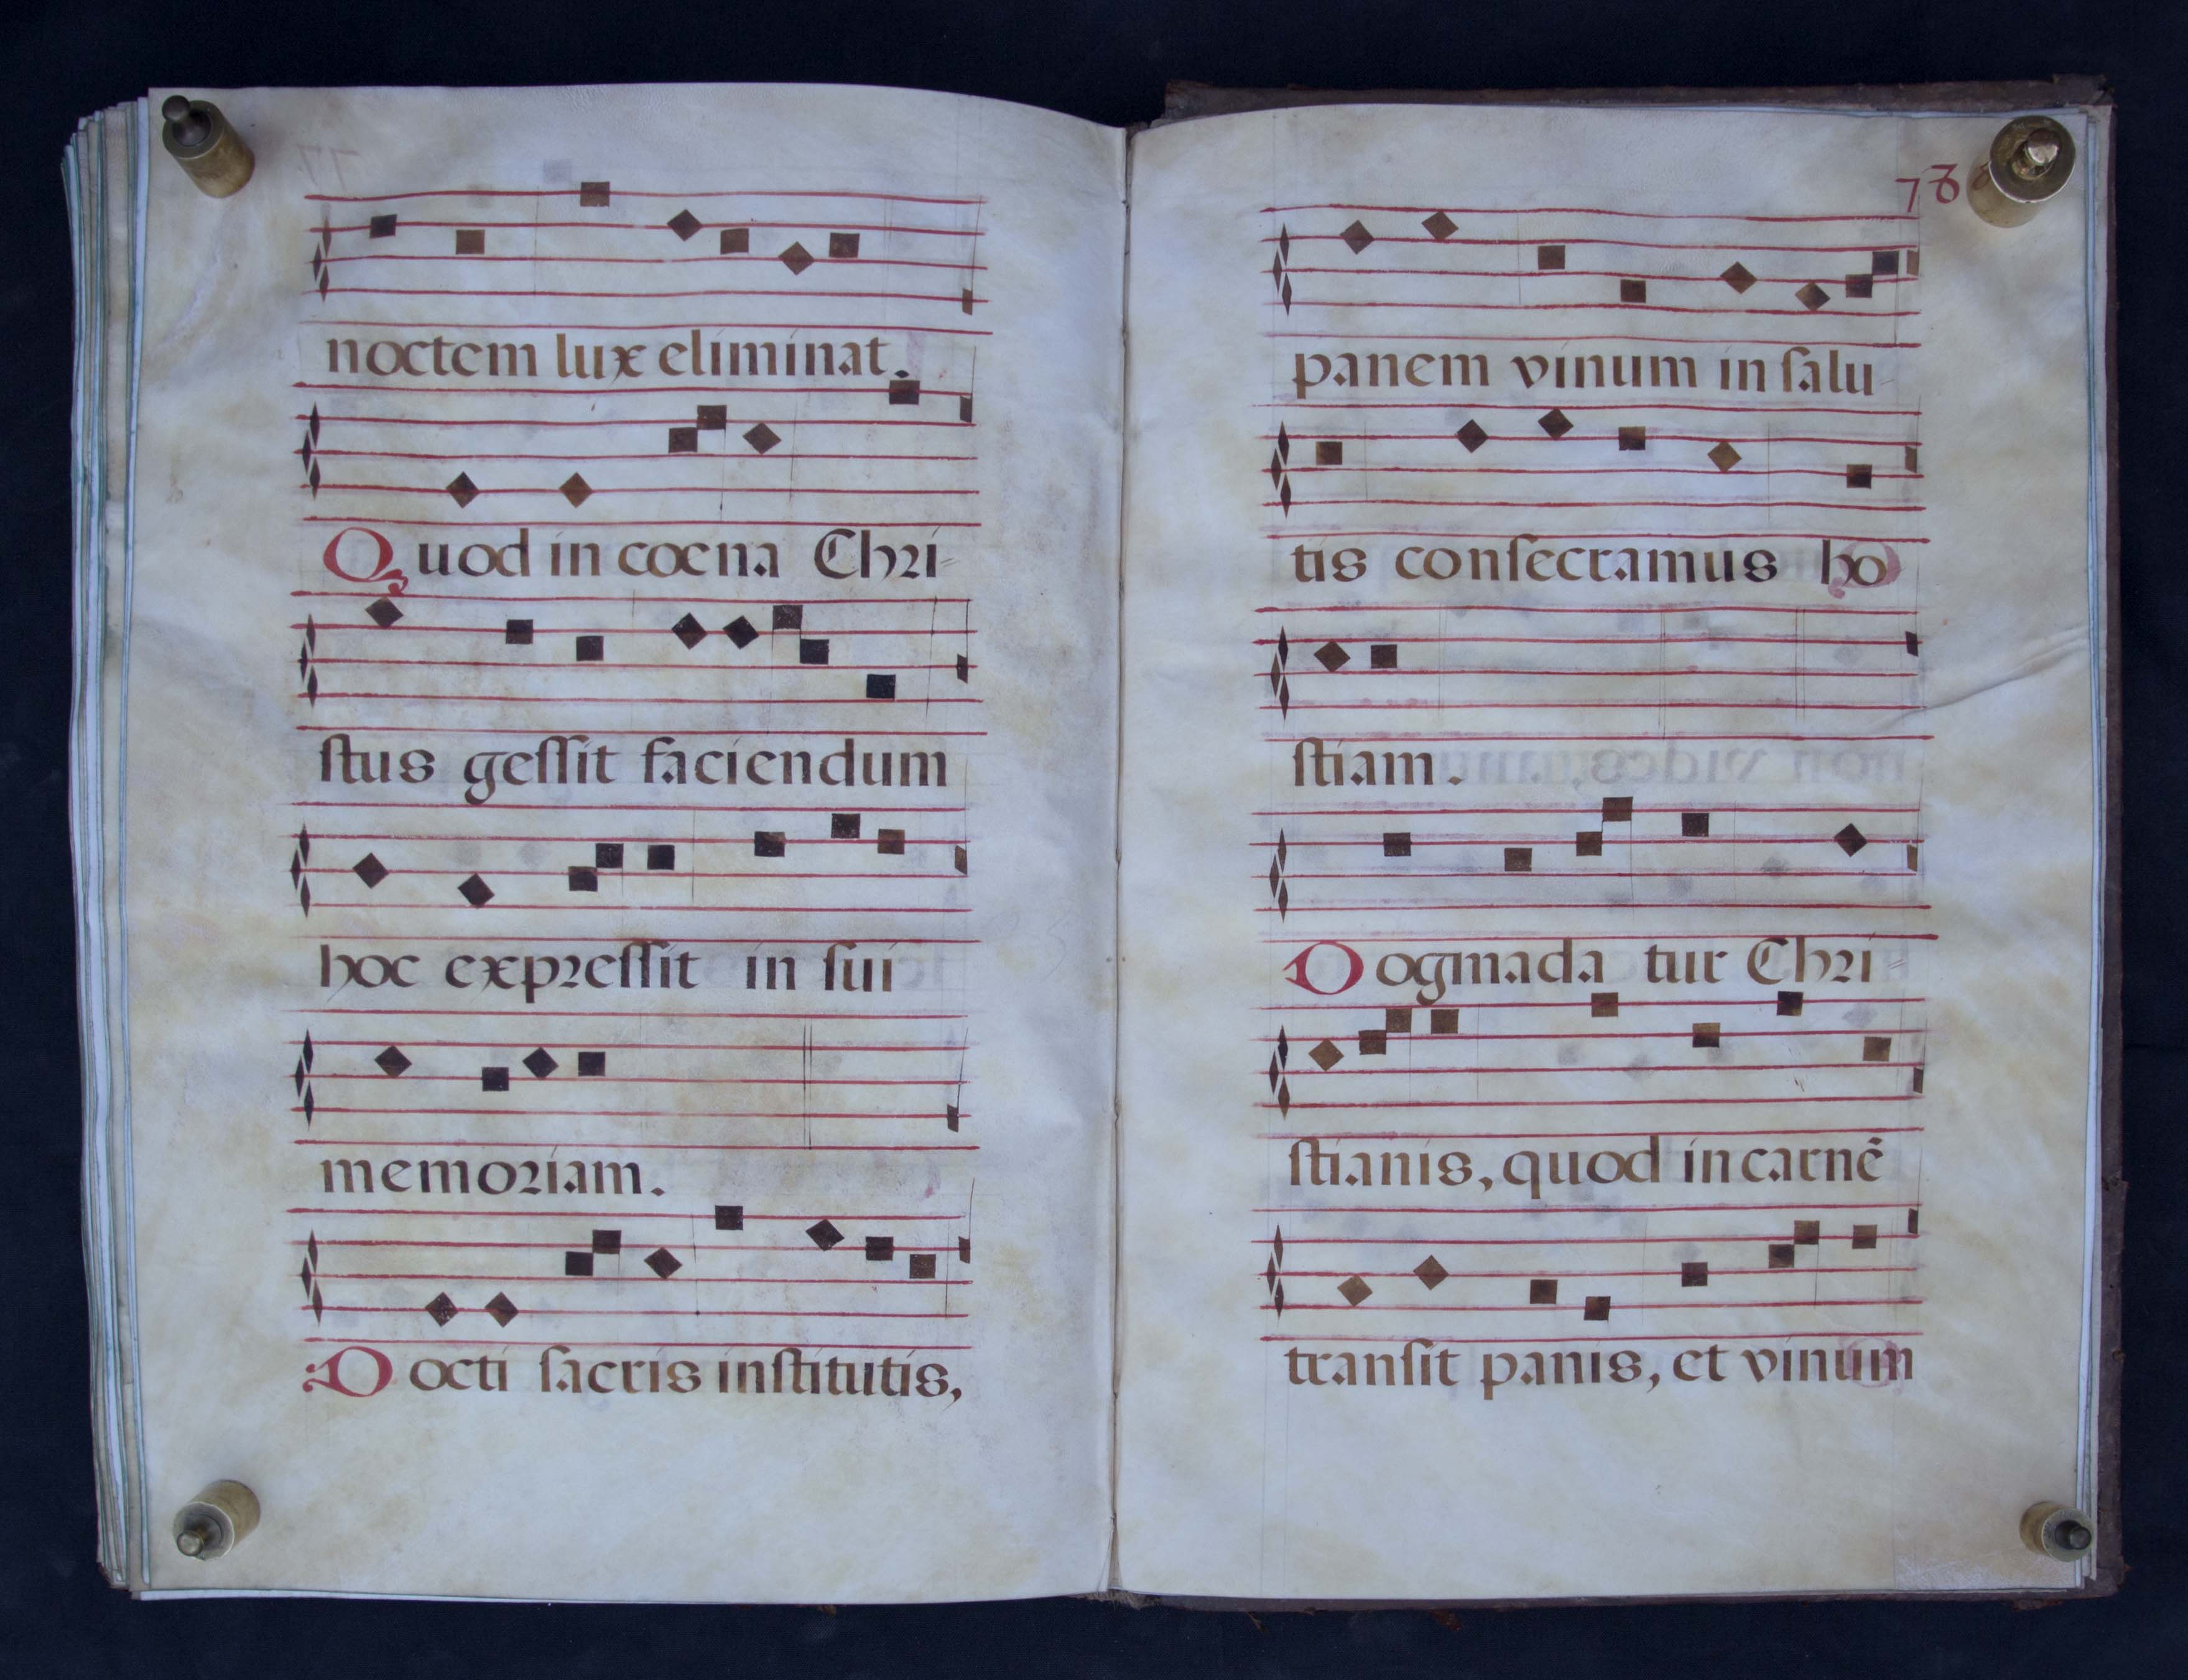 noctem lux eliminat.
Quod in coena Chri-
ſtus geſſit faciendum
hoc expreſſit in ſui
memoriam.
Docti ſacris inſtitutis,
78
panem vinum in ſalu-
tis conſecramus ho
ſtiam.
Dogmada tur Chri-
ſtianis, quod in carnē
tranſit panis, et vinum